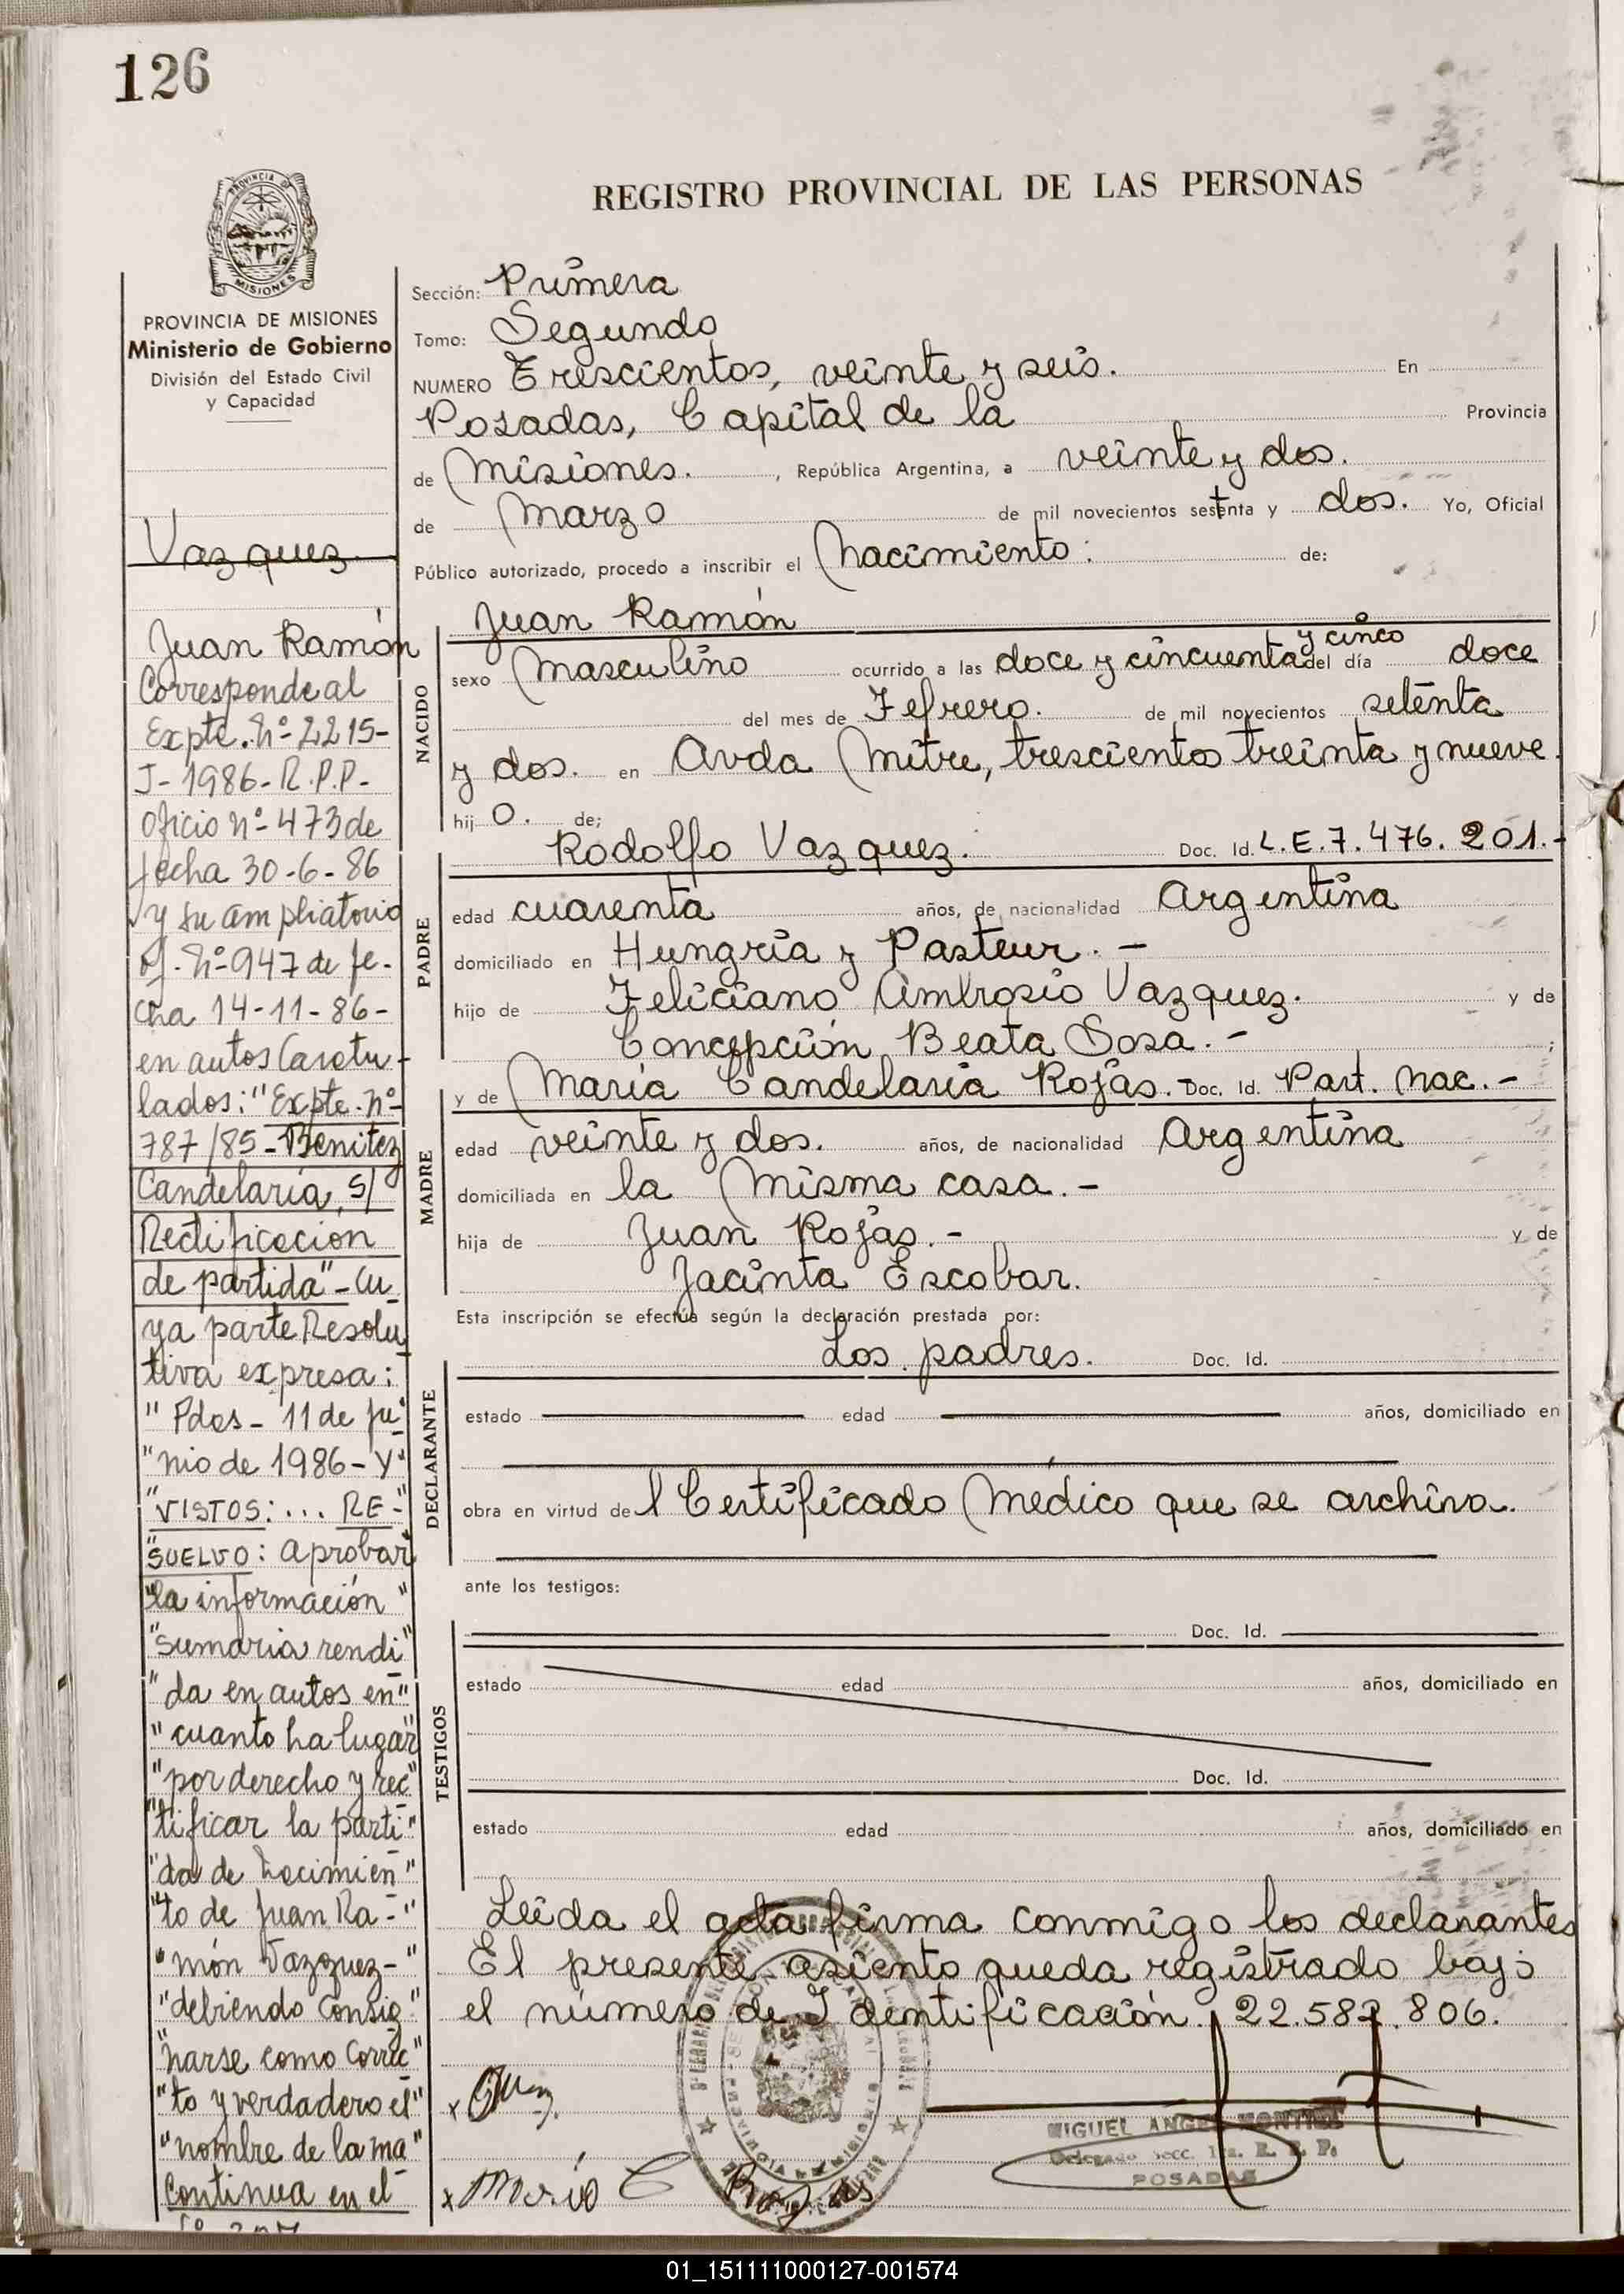 126
REGISTRO PROVINCIAL DE LAS PERSONAS
PROVINCIA DE MISIONES
Ministerio de Gobierno
División del Estado Civil
y Capacidad
Vazquez
Juan Ramón
Corresponde al
Expte. Nº 2215-
J-1986-R.P.P-
Oficio nº 473 de
fecha 30-6-86
y su ampliatorio
Of. Nº 947 de fe-
cha 14-11-86-
en autos Caratu-
lados: "Expte. nº
787/85-Benitez
Candelaria, S/
Rectificacion
de partida"-Cu
ya parte Resolu
tiva expresa:
"Pdas- 11 de ju"
"nio de 1986-Y"
"VISTOS:... RE-"
"SUELVO: Aprobar"
"la información"
"sumaria rendi"
"da en autos en"
"cuanto ha lugar"
"por derecho y rec"
"tificar la parti-"
"da de nacimien"
"to de Juan Ra-"
"món Vazquez-"
"debiendo consig"
"narse como Correc"
"to y verdadero el"
"nombre de la ma"
Continua en el
Sección: Primera
Tomo: Segundo
NUMERO Trescientos, veinte y seis. En
Posadas, Capital de la Provincia
de Misiones. , República Argentina, a veinte y dos.
de Marzo de mil novecientos setenta y dos. Yo, Oficial
Público autorizado, procedo a inscribir el Nacimiento: de:
NACIDO
Juan Ramón
sexo Masculino ocurrido a las doce y cincuenta y cinco del día doce
del mes de Febrero. de mil novecientos setenta
y dos. en Avda Mitre, trescientos treinta y nueve.
hij o. de;
PADRE
Rodolfo Vazquez. Doc. Id. L.E.7.476.201.-
edad cuarenta años, de nacionalidad Argentina
domiciliado en Hungría y Pasteur.-
hijo de Feliciano Ambrosio Vazquez. y de
Concepción Beata Sosa.- ;
MADRE
y de María Candelaria Rojas.- Doc. Id. Part. Nac.-
edad veinte y dos. años, de nacionalidad Argentina
domiciliada en la Misma casa.-
hija de Juan Rojas.- y de
Jacinta Escobar.
Esta inscripción se efectúa según la declaración prestada por:
DECLARANTE
Los padres. Doc. Id.
estado edad años, domiciliado en
obra en virtud de l Certificado Médico que se archiva.
ante los testigos:
TESTIGOS
Doc. Id.
estado edad años, domiciliado en
Doc. Id.
estado edad años, domiciliado en
Leída el acta firma conmigo los declarantes
El presente asiento queda registrado bajo
el número de Identificación. 22.587.806.
MIGUEL ANGEL
Delegado Secc. 1ra. R. P. P.
POSADAS
x María C Rojas
01_151111000127-001574